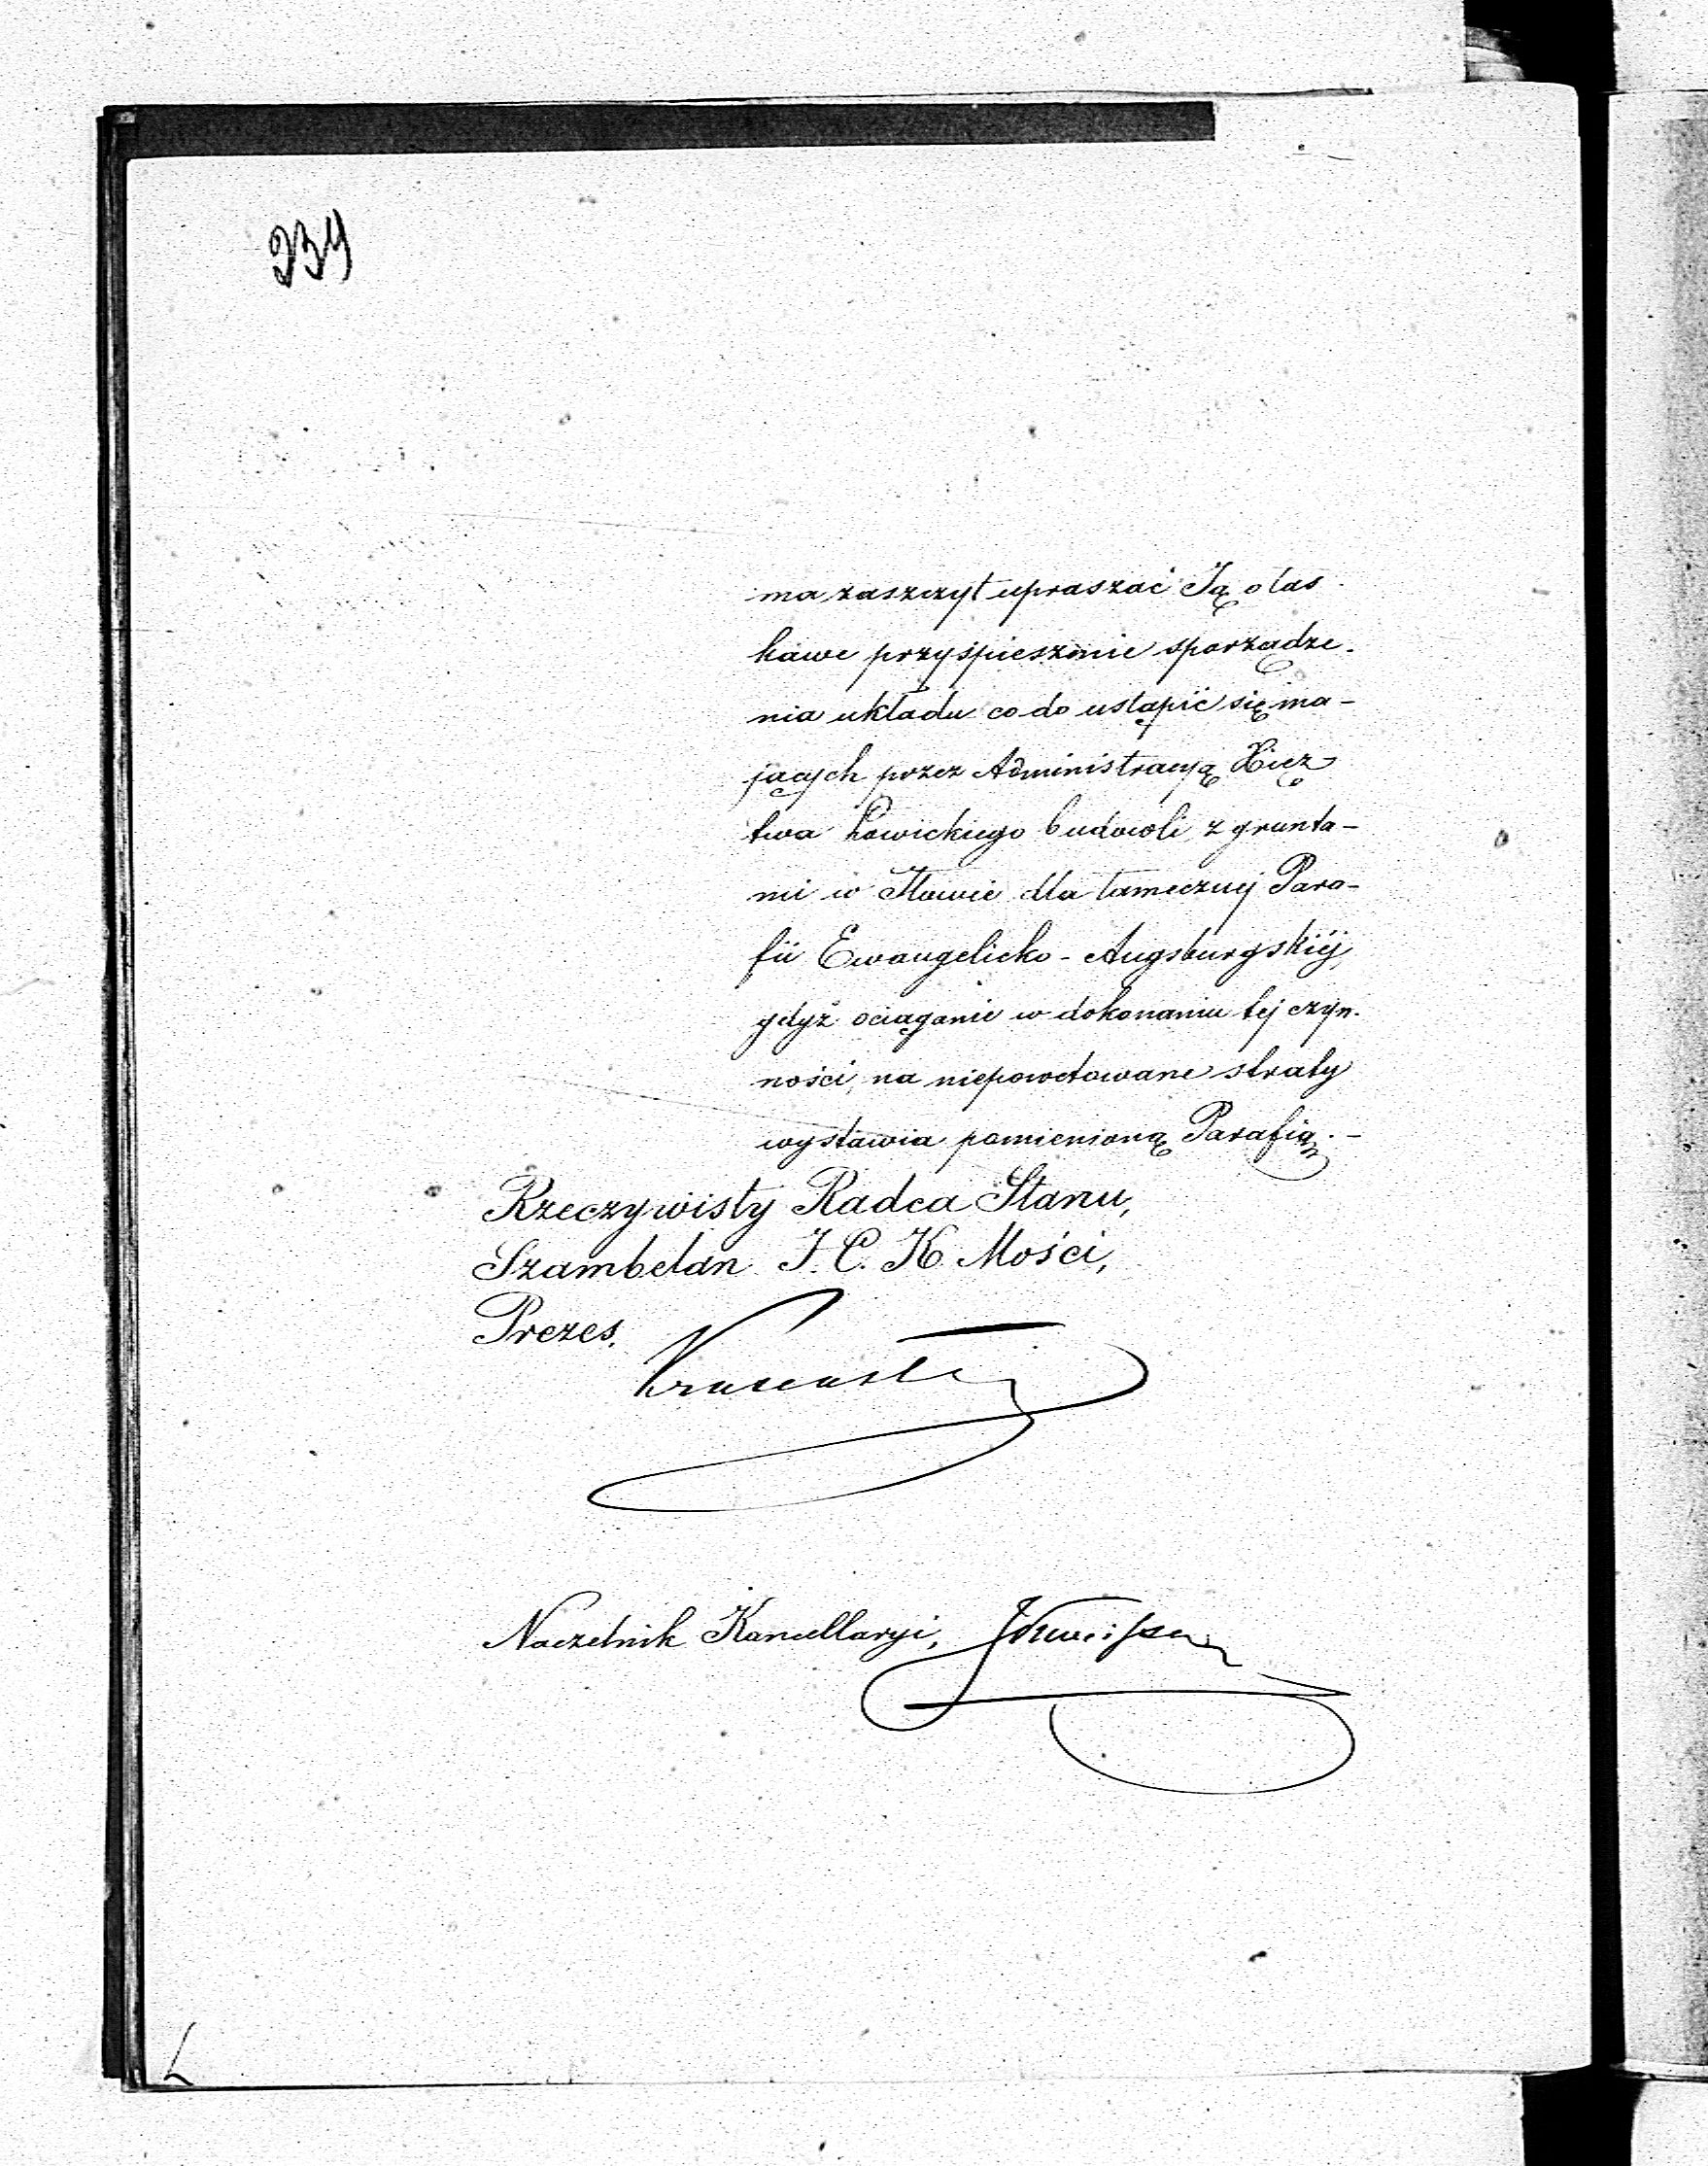 234
ma zaszczyt upraszać Ją o łas
kawe przyśpieszenie sporządze-
nia układu co do ustąpić się ma-
jących przez Administracyą Xięz
twa Łowickiego budowli z grunta-
mi w Iłowie dla tamecznej Para-
fii Ewangelicko-Augsburgskiéj,
gdyż ociąganie w dokonaniu tej czyn-
ności, na niepowetowane straty
wystawia pomienioną Parafią. -
Rzeczywisty Radca Stanu,
Szambelan J. C. K Mości,
Prezes.
Naczelnik Kancellaryi,